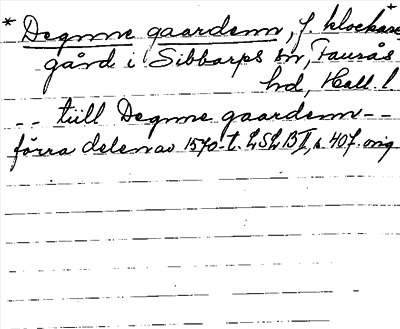 * Degnne gaardenn, f. klockare
gård i Sibbarps sn, Faurås
hd, Hall. l.
-- tiill Degnne gaardenn --
förra delen av 1570-t. LSLB II, s. 407. orig